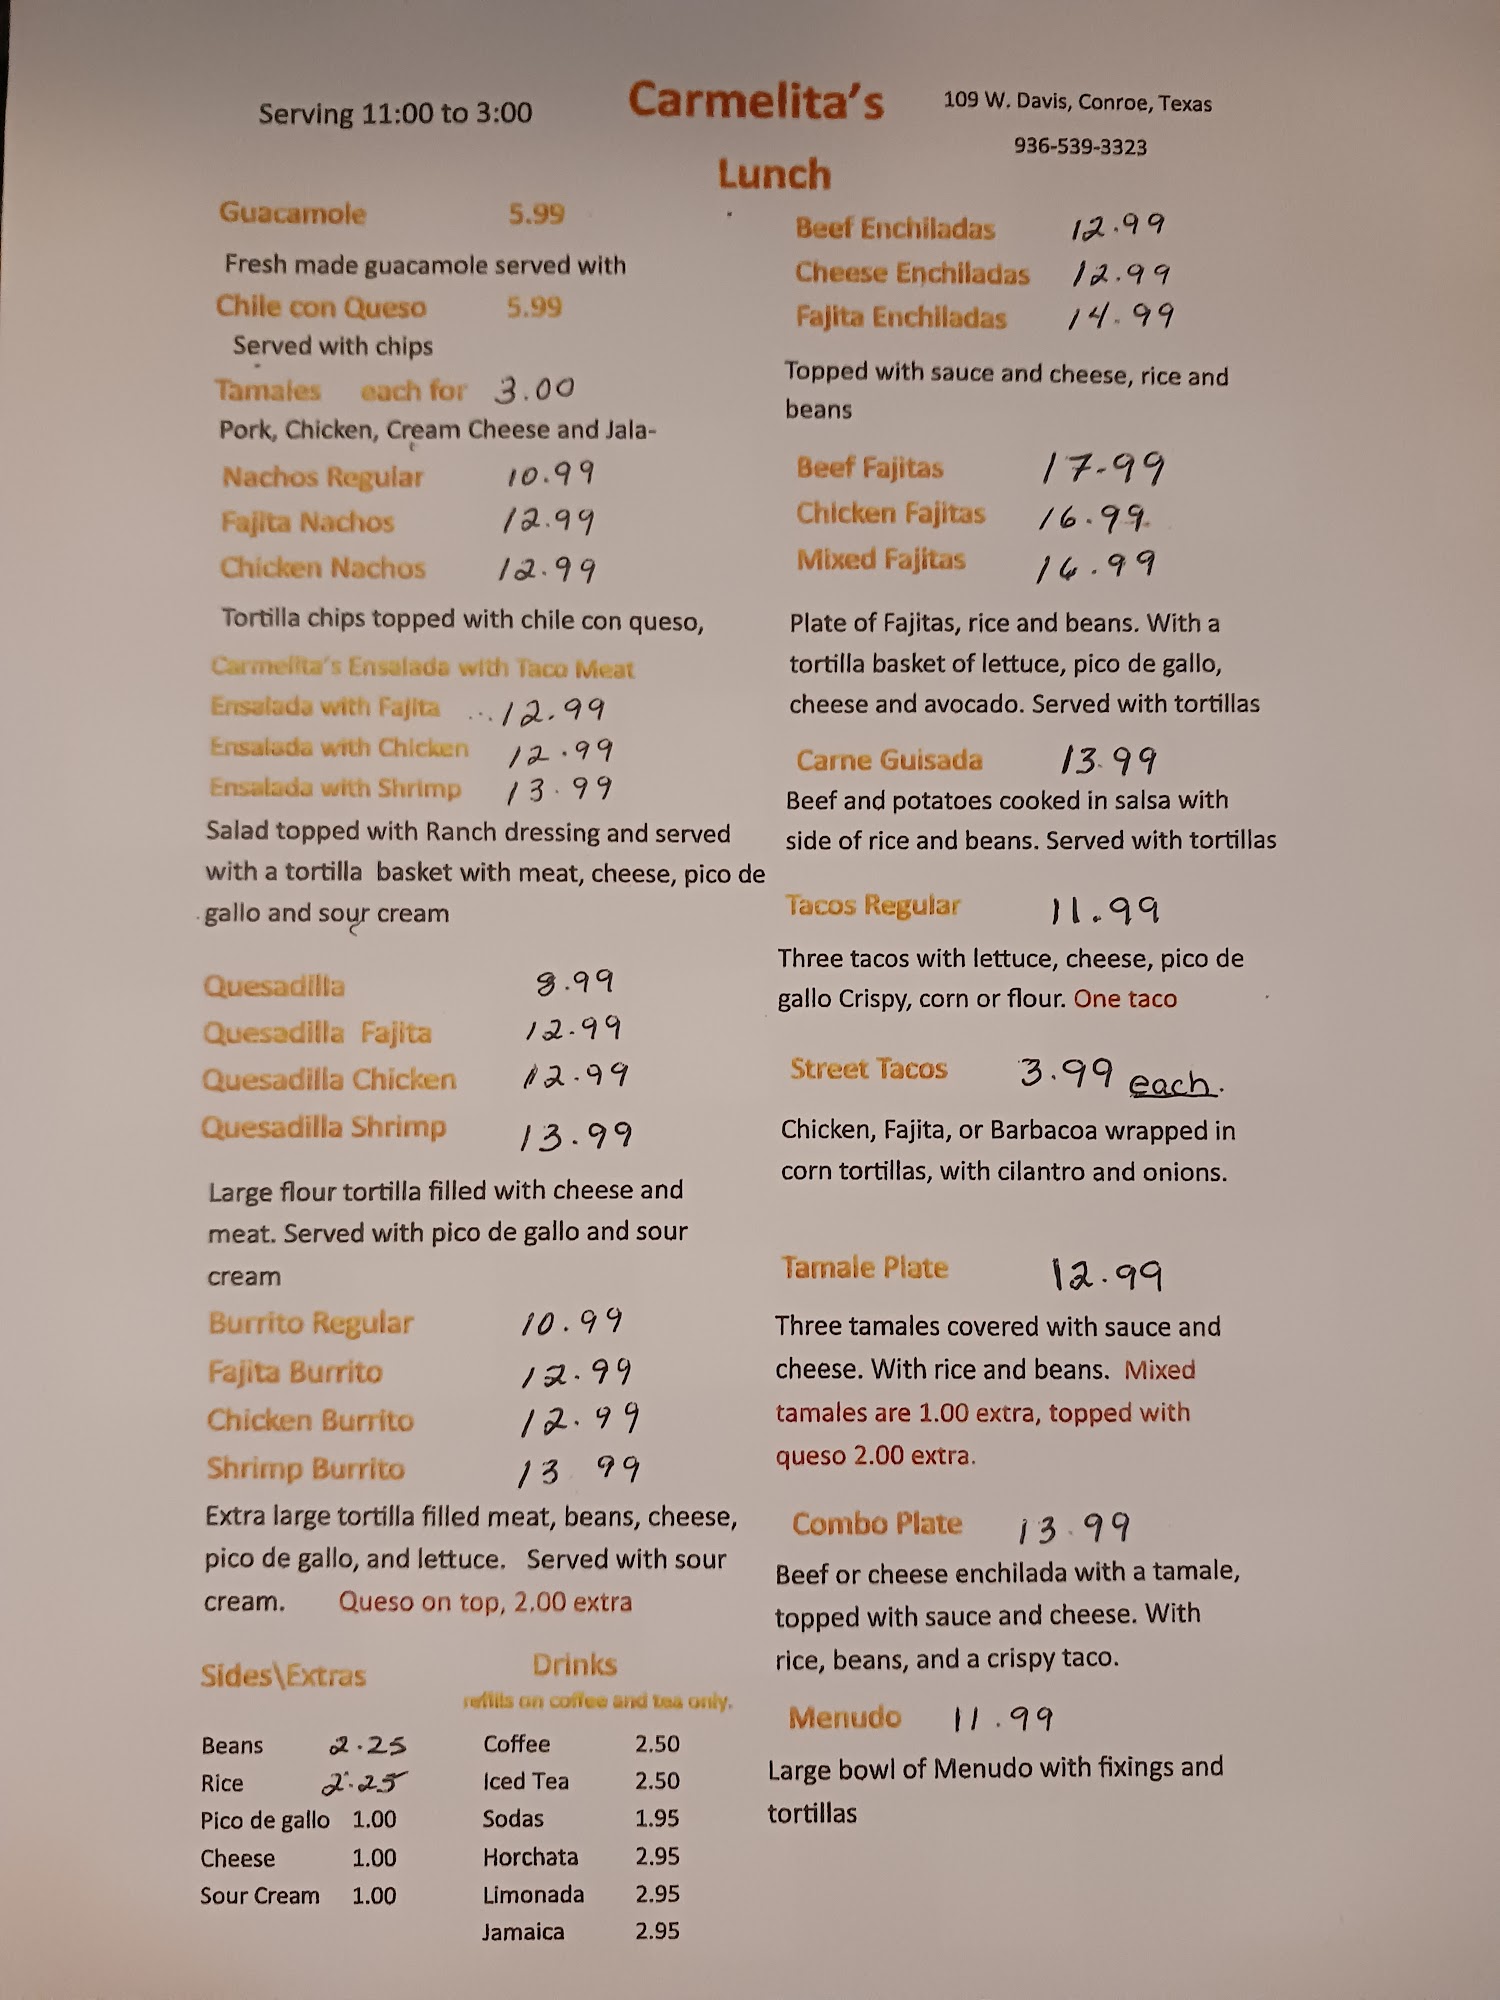 Serving 11:00 to 3:00
Carmelita's
109 W. Davis, Conroe, Texas
936-539-3323
Lunch
Guacamole 5.99
Fresh made guacamole served with
Chile con Queso 5.99
Served with chips
Tamales each for 3.00
Pork, Chicken, Cream Cheese and Jala-
Nachos Regular 10.99
Fajita Nachos 12.99
Chicken Nachos 12.99
Tortilla chips topped with chile con queso,
Carmelita's Ensalada with Taco Meat
Ensalada with Fajita ...12.99
Ensalada with Chicken 12.99
Ensalada with Shrimp 13.99
Salad topped with Ranch dressing and served
with a tortilla basket with meat, cheese, pico de
gallo and sour cream
Quesadilla 8.99
Quesadilla Fajita 12.99
Quesadilla Chicken 12.99
Quesadilla Shrimp 13.99
Large flour tortilla filled with cheese and
meat. Served with pico de gallo and sour
cream
Burrito Regular 10.99
Fajita Burrito 12.99
Chicken Burrito 12.99
Shrimp Burrito 13 99
Extra large tortilla filled meat, beans, cheese,
pico de gallo, and lettuce. Served with sour
cream. Queso on top, 2.00 extra
Sides\Extras
Beans 2.25
Rice 2.25
Pico de gallo 1.00
Cheese 1.00
Sour Cream 1.00
Drinks
refills on coffee and tea only.
Coffee 2.50
Iced Tea 2.50
Sodas 1.95
Horchata 2.95
Limonada 2.95
Jamaica 2.95
Beef Enchiladas 12.99
Cheese Enchiladas 12.99
Fajita Enchiladas 14.99
Topped with sauce and cheese, rice and
beans
Beef Fajitas 17.99
Chicken Fajitas 16.99
Mixed Fajitas 16.99
Plate of Fajitas, rice and beans. With a
tortilla basket of lettuce, pico de gallo,
cheese and avocado. Served with tortillas
Carne Guisada 13.99
Beef and potatoes cooked in salsa with
side of rice and beans. Served with tortillas
Tacos Regular 11.99
Three tacos with lettuce, cheese, pico de
gallo Crispy, corn or flour. One taco
Street Tacos 3.99 each.
Chicken, Fajita, or Barbacoa wrapped in
corn tortillas, with cilantro and onions.
Tamale Plate 12.99
Three tamales covered with sauce and
cheese. With rice and beans. Mixed
tamales are 1.00 extra, topped with
queso 2.00 extra.
Combo Plate 13.99
Beef or cheese enchilada with a tamale,
topped with sauce and cheese. With
rice, beans, and a crispy taco.
Menudo 11.99
Large bowl of Menudo with fixings and
tortillas